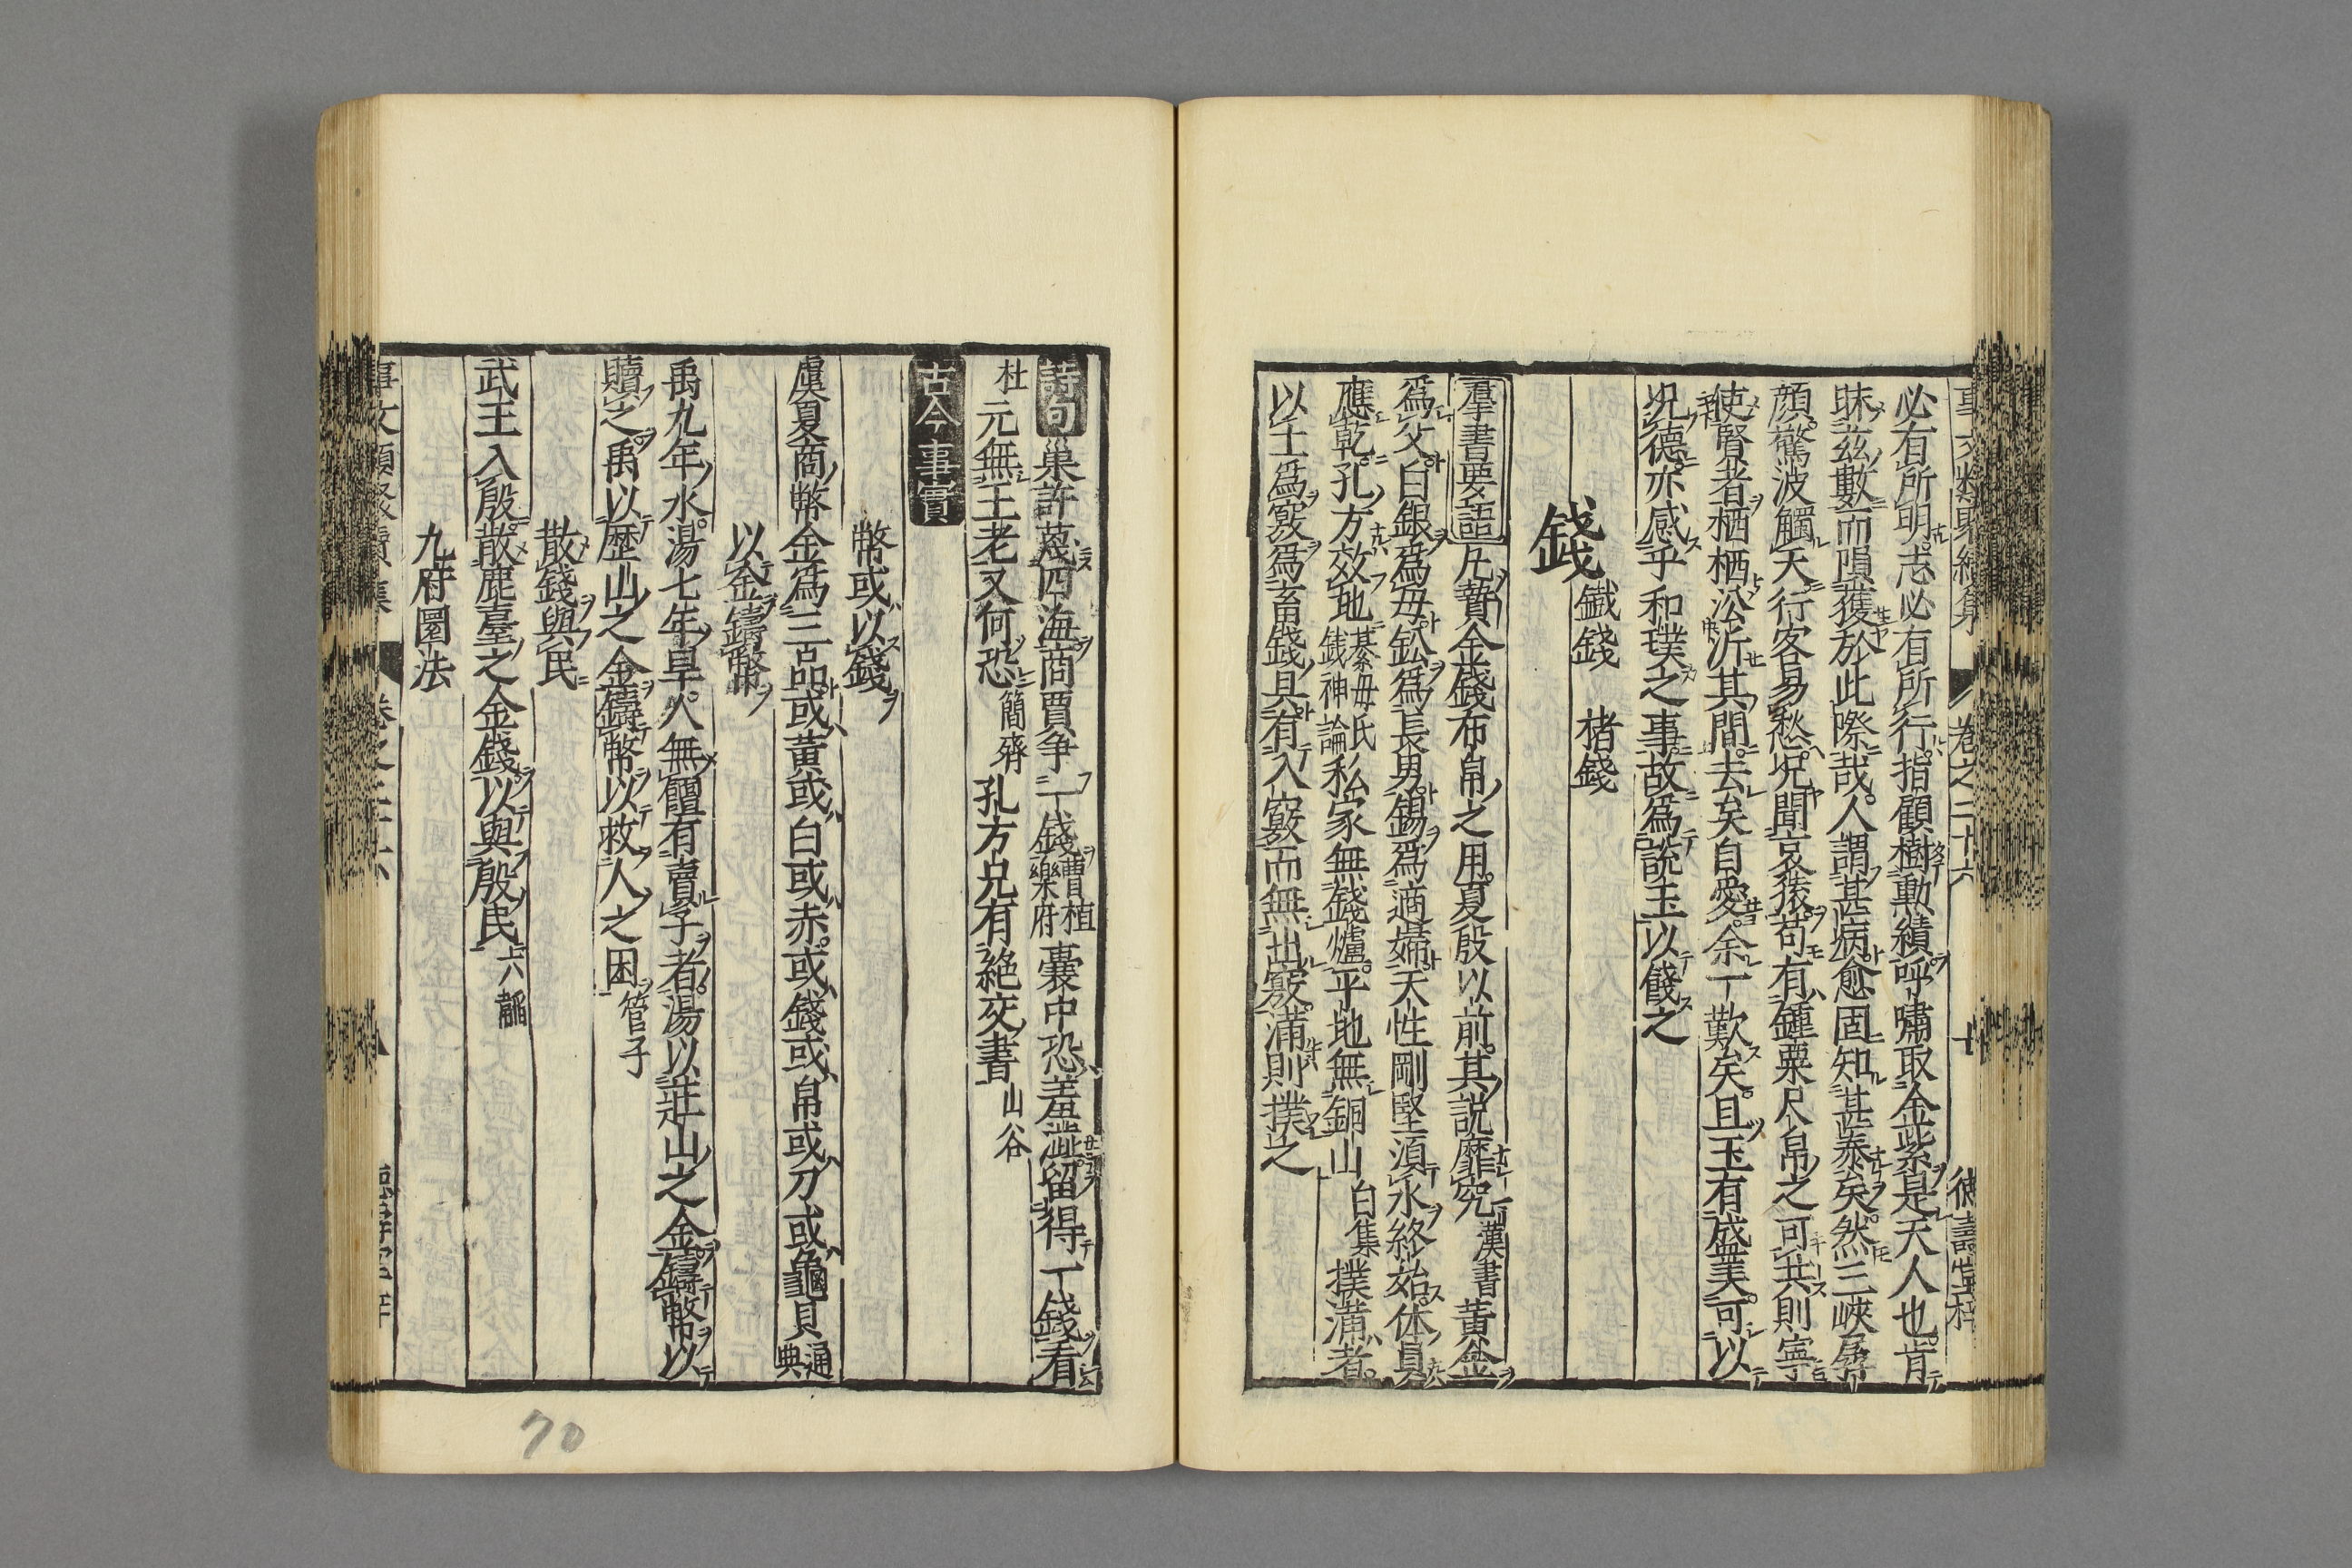 事文類聚續集 卷之二十六 十 德壽堂梓
必有所明志必有所行指顧樹勳績呼嘯取金紫是天人也肯
昧茲數而隕獲於此際哉人謂甚病愈固知甚泰矣然三峽孱
顏驚波觸天行客易愁况聞哀猿苟有鍾粟尺帛之可共則寧
使賢者栖栖㳂沂其間去矣自愛余一歎矣且玉有盛美可以
况德亦感乎和璞之事故爲說玉以餞之
錢
鐵錢 楮錢
羣書要語 凡貨金錢布帛之用夏殷以前其說靡究漢書黃金
爲父白銀爲母鉛爲長男錫爲適婦天性剛堅湏水終始体員
應乾孔方效地綦毋氏錢神論私家無錢爐平地無銅山白集撲滿者
以土爲竅爲畜錢具有入竅而無出竅滿則撲之
詩句 巢許蔑四海商賈争一錢曹植樂府囊中恐羞澁留得一錢看
杜元無王老又何恐簡齋孔方兄有絶交書山谷
古今事實
幣或以錢
虞夏商幣金爲三品或黃或白或赤或錢或帛或刀或龜貝通典
以金鑄幣
禹九年水湯七年旱人無饘有賣子者湯以莊山之金鑄幣以
贖之禹以歷山之金鑄幣以救人之困管子
散錢與民
武王入殷散鹿臺之金錢以與殷民六韜
九府圜法
事文類聚續集 卷之二十六
70